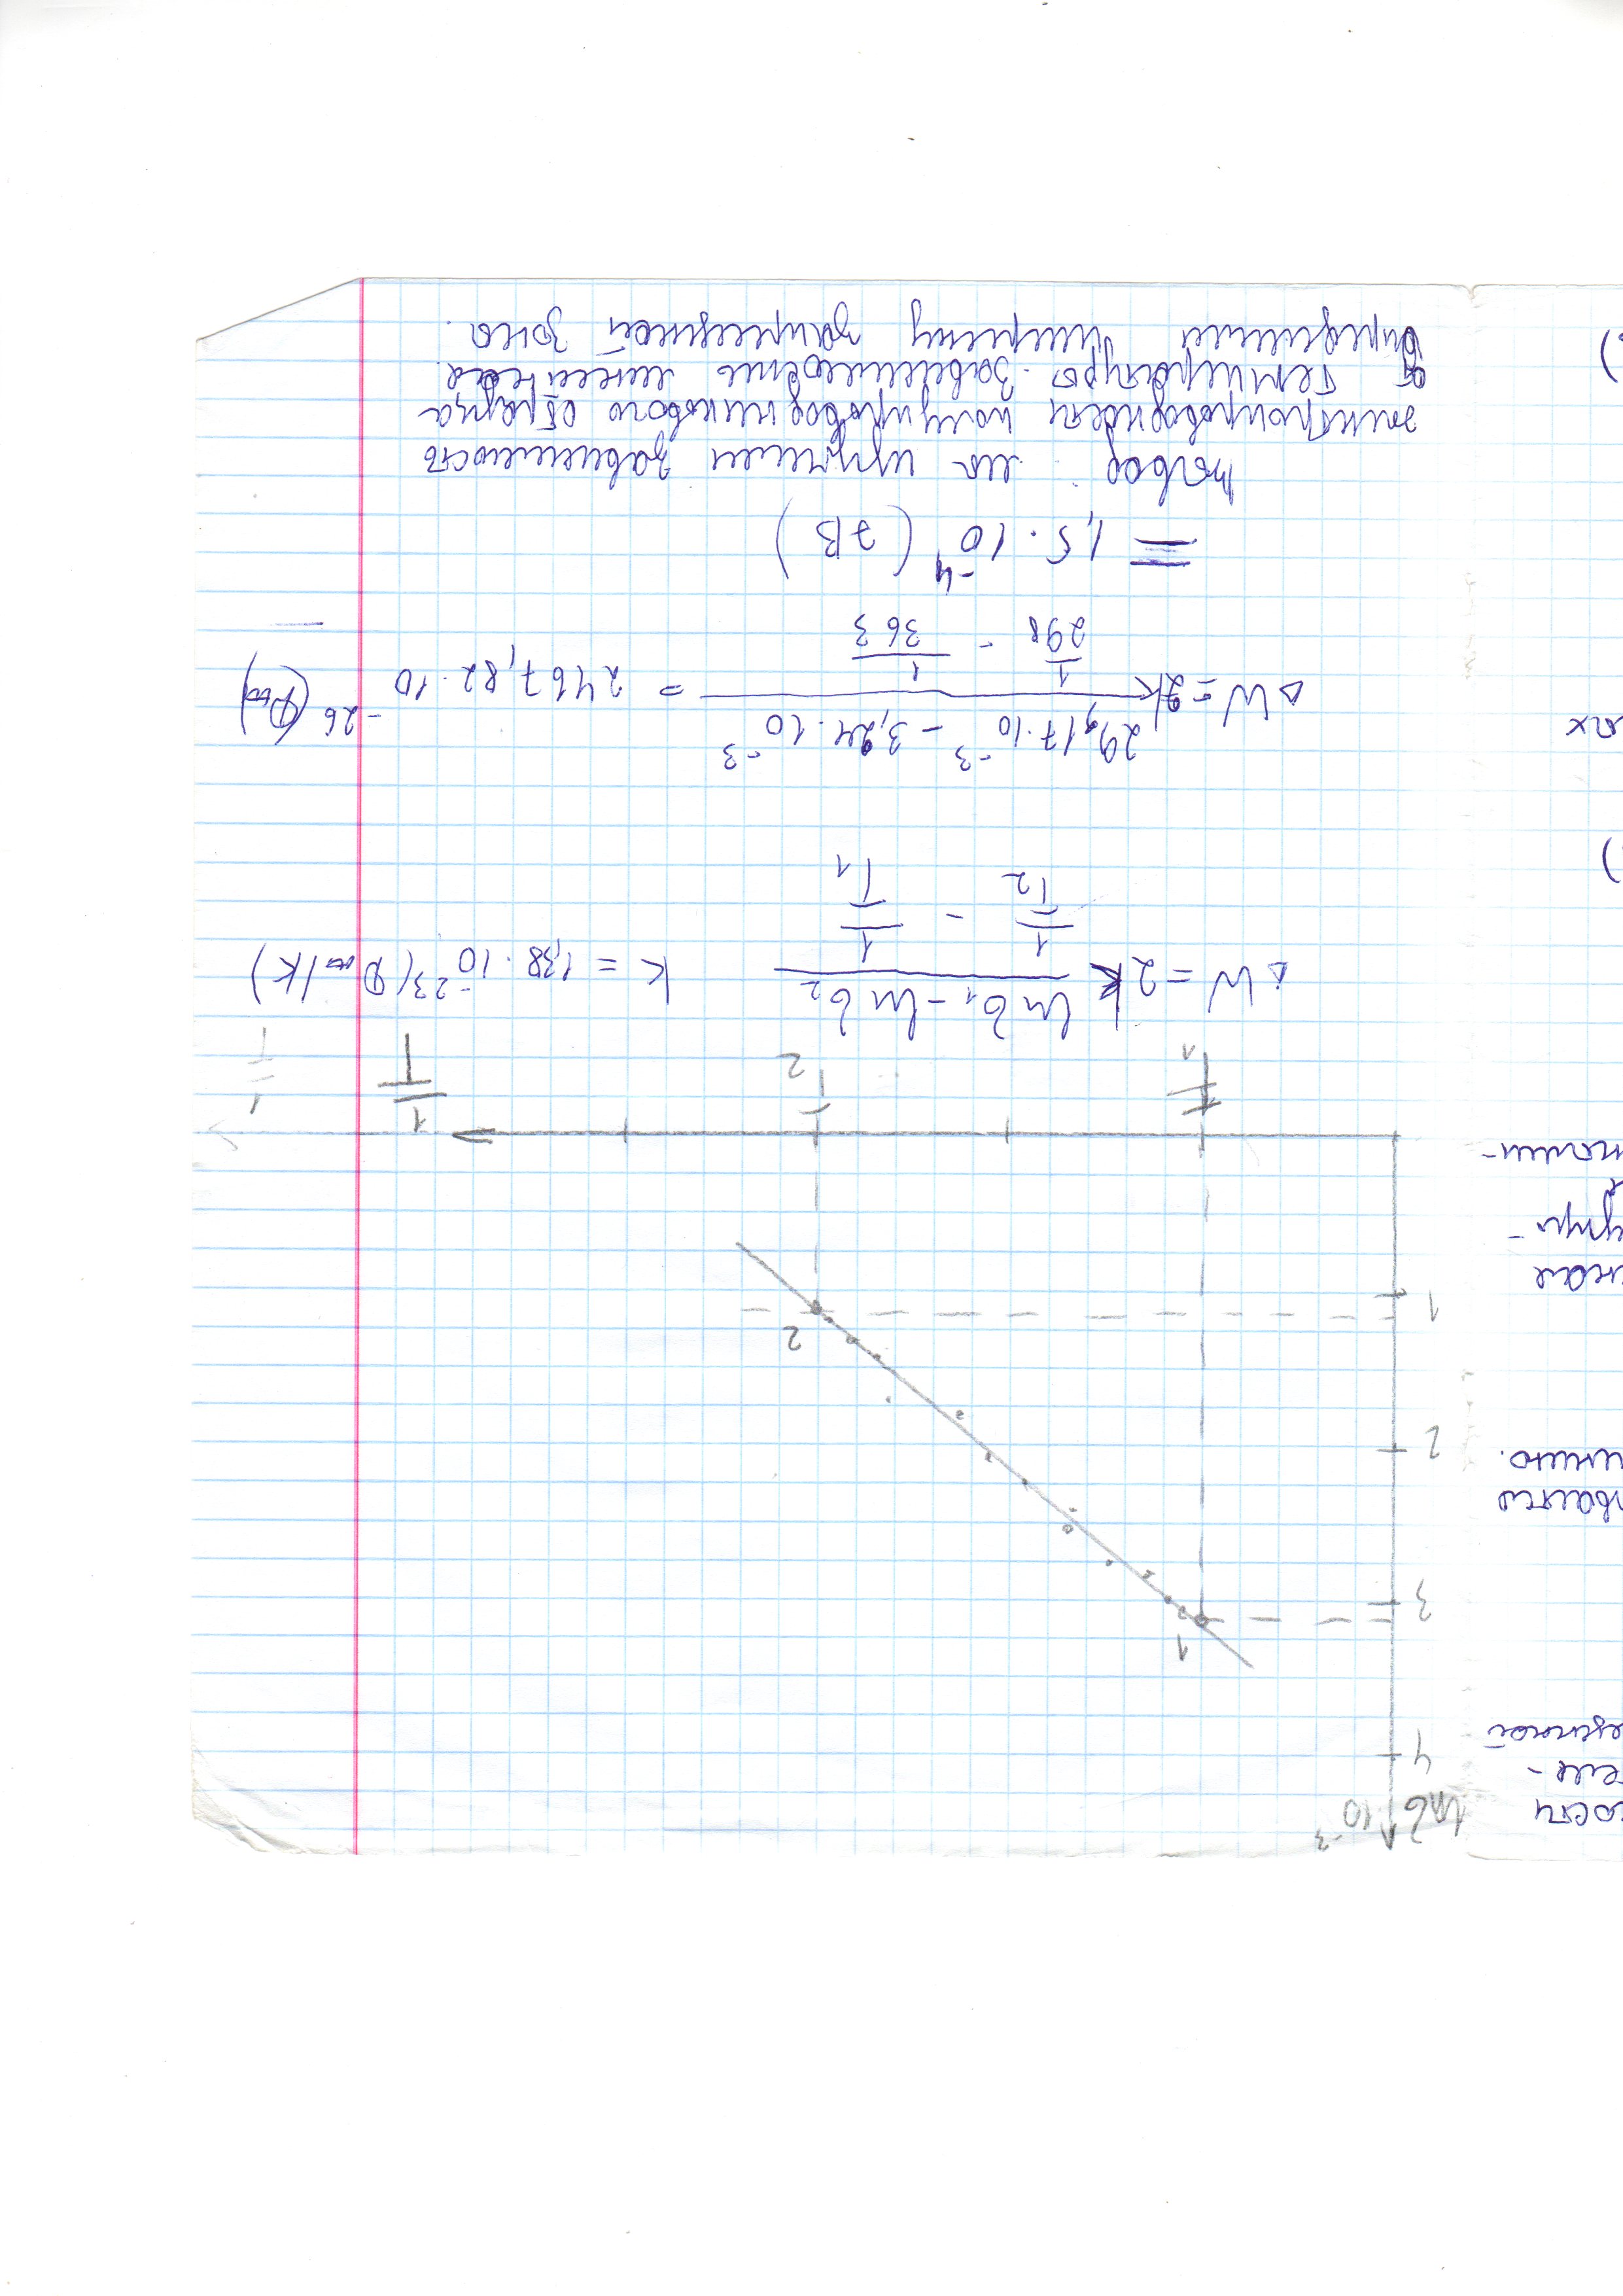 кости
теле-
ещенной
ивается
инию.
ная
ными-
)
ых
)
lnσ 10⁻³
4
3
2
1
1
2
T₁
T₂
1/T
1/T
ΔW = 2k (lnσ₁ - lnσ₂)/(1/T₂ - 1/T₁)   k = 1,38 · 10⁻²³ (Дж/К)
ΔW = 2k (29,17·10⁻³ - 3,24·10⁻³)/(1/298 - 1/363) = 2467,82·10⁻²⁶ (Дж)
= 1,5·10⁻⁴ (эВ)
Вывод: мы изучили зависимость
электропроводности полупроводникового образца
от температуры. Зависимость линейная.
Определили ширину запрещеной зоны.